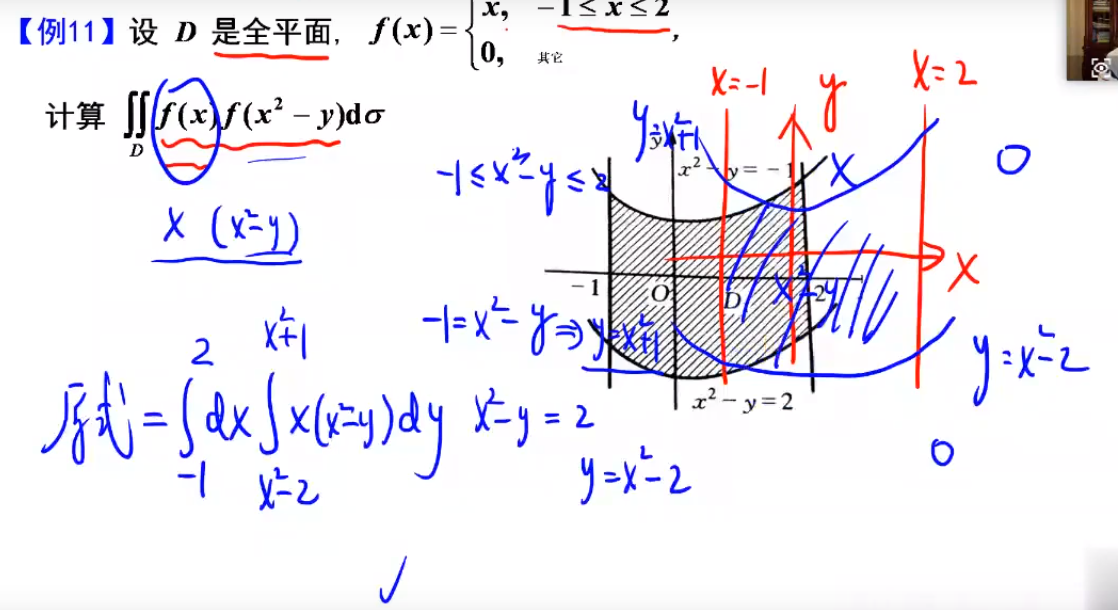 【例11】设 D 是全平面, f(x)={x, -1≤x≤2
0, 其它 ,
计算 ∬_D f(x)f(x²-y)dσ
x (x²-y)
-1≤x²-y≤2
-1=x²-y⇒y=x²+1
原式=∫_{-1}^{2}dx∫_{x²-2}^{x²+1}x(x²-y)dy
x²-y=2
y=x²-2
x=-1
y
x=2
y=x²+1
y
x²-y=-1
x
0
-1
O
D
2
x²-y
x
x²-y=2
y=x²-2
0